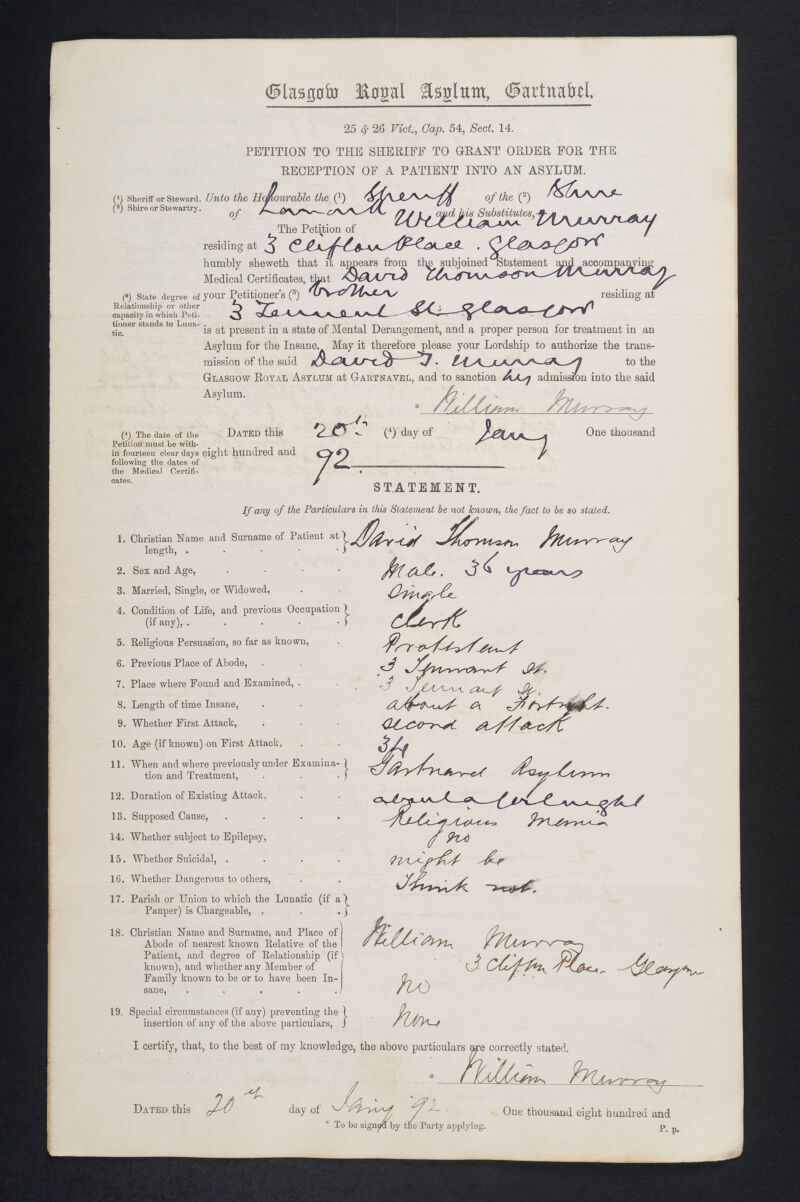 Glasgow Royal Asylum, Gartnabel.
25 & 26 Vict., Cap. 54, Sect. 14.
PETITION TO THE SHERIFF TO GRANT ORDER FOR THE
RECEPTION OF A PATIENT INTO AN ASYLUM.
(¹) Sheriff or Steward.
(²) Shire or Stewartry.
Unto the Honourable the (¹) Sheriff of the (²) Shire
of Lanark and his Substitutes,
The Petition of William Murray
residing at 3 Clifton Place. Glasgow
humbly sheweth that it appears from the subjoined Statement and accompanying
Medical Certificates, that David Thomson Murray
(³) State degree of
Relationship or other
capacity in which Peti-
tioner stands to Luna-
tic.
your Petitioner's (³) brother residing at
3 Tennent St. Glasgow
is at present in a state of Mental Derangement, and a proper person for treatment in an
Asylum for the Insane. May it therefore please your Lordship to authorize the trans-
mission of the said David T. Murray to the
GLASGOW ROYAL ASYLUM AT GARTNAVEL, and to sanction his admission into the said
Asylum.
* William Murray
(⁴) The date of the
Petition must be with-
in fourteen clear days
following the dates of
the Medical Certifi-
cates.
DATED this 20th (⁴) day of Jany One thousand
eight hundred and 92
STATEMENT.
If any of the Particulars in this Statement be not known, the fact to be so stated.
1. Christian Name and Surname of Patient at
length, . David Thomson Murray
2. Sex and Age, Male. 36 years
3. Married, Single, or Widowed, Single
4. Condition of Life, and previous Occupation
(if any), . Clerk
5. Religious Persuasion, so far as known, Protestant
6. Previous Place of Abode, . 3 Tennant St.
7. Place where Found and Examined, . 3 Tennant St.
8. Length of time Insane, about a Fortnight.
9. Whether First Attack, second attack
10. Age (if known) on First Attack, 36
11. When and where previously under Examina-
tion and Treatment, Gartnavel Asylum
12. Duration of Existing Attack, about a fortnight
13. Supposed Cause, . Religious Mania
14. Whether subject to Epilepsy, no
15. Whether Suicidal, . might be
16. Whether Dangerous to others, Think not.
17. Parish or Union to which the Lunatic (if a
Pauper) is Chargeable, .
18. Christian Name and Surname, and Place of
Abode of nearest known Relative of the
Patient, and degree of Relationship (if
known), and whether any Member of
Family known to be or to have been In-
sane, William Murray
3 Clifton Place Glasgow
No
19. Special circumstances (if any) preventing the
insertion of any of the above particulars, None
I certify, that, to the best of my knowledge, the above particulars are correctly stated.
* William Murray
DATED this 20th day of Jany 92. One thousand eight hundred and
* To be signed by the Party applying.
P. p.